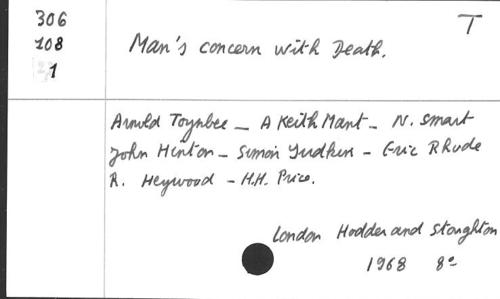 306
T
108
Man's concern with Death.
1
Arnold Toynbee _ A Keith Mant _ N. Smart
John Hinton _ Simon Yudkin _ Eric Rhode
R. Heywood _ H.H. Price.
London Hodder and Stoughton
1968 8º